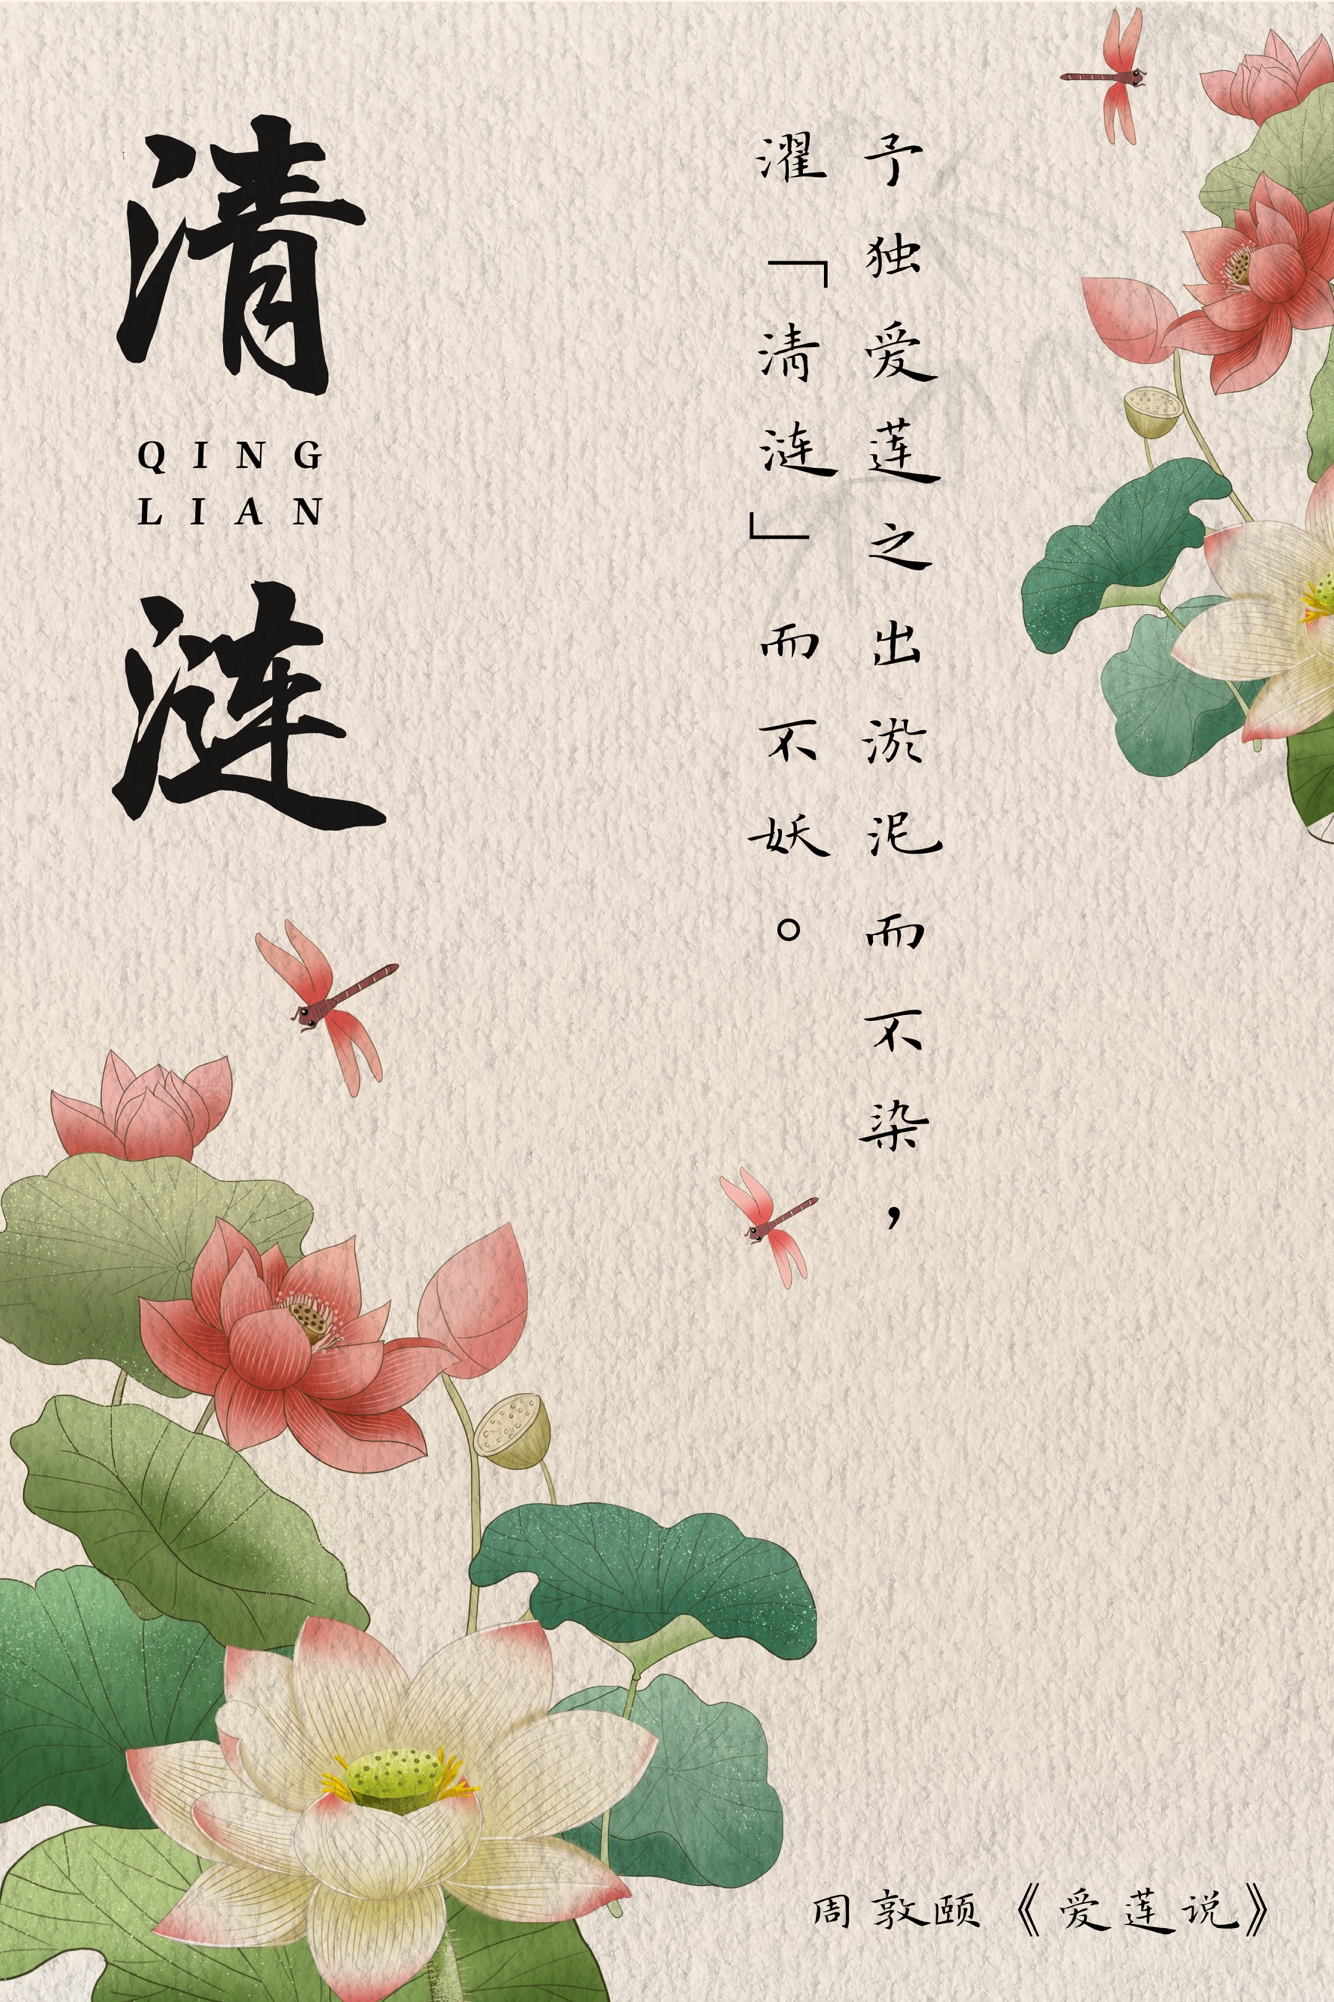 清
QING
LIAN
涟
予独爱莲之出淤泥而不染，
濯「清涟」而不妖。
周敦颐《爱莲说》